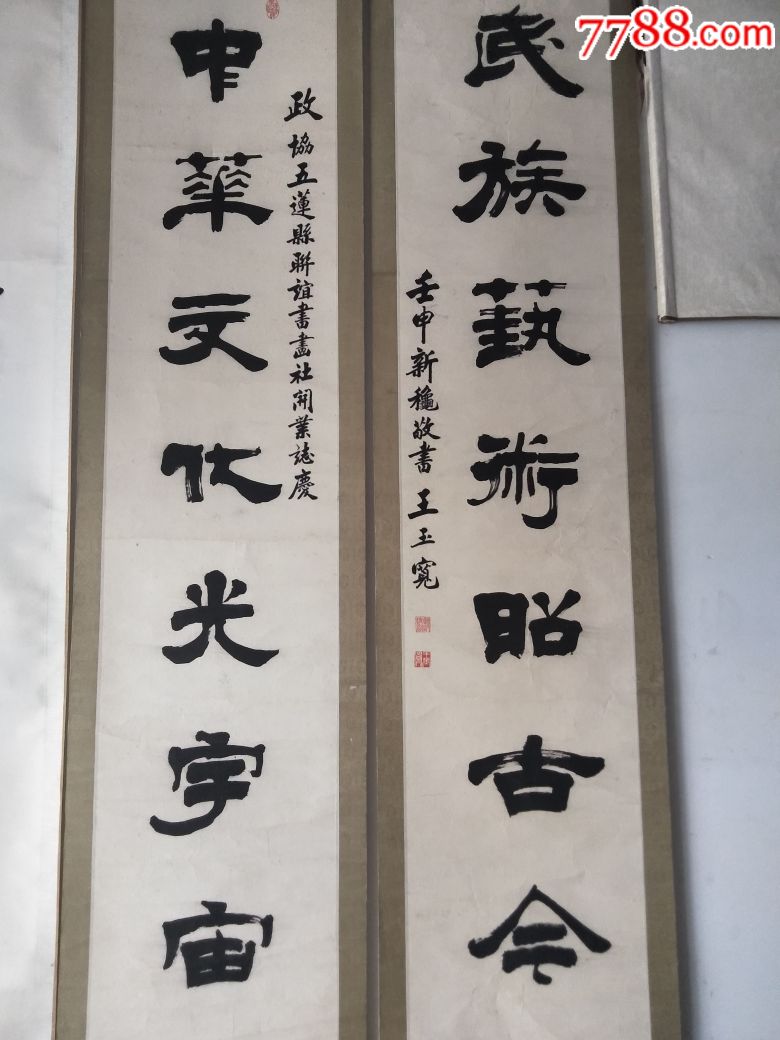 7788.com
民族藝術昭古今
壬申新龝敬書 王玉寬
政協五蓮縣聯誼書畫社開業誌慶
中華文化光宇宙